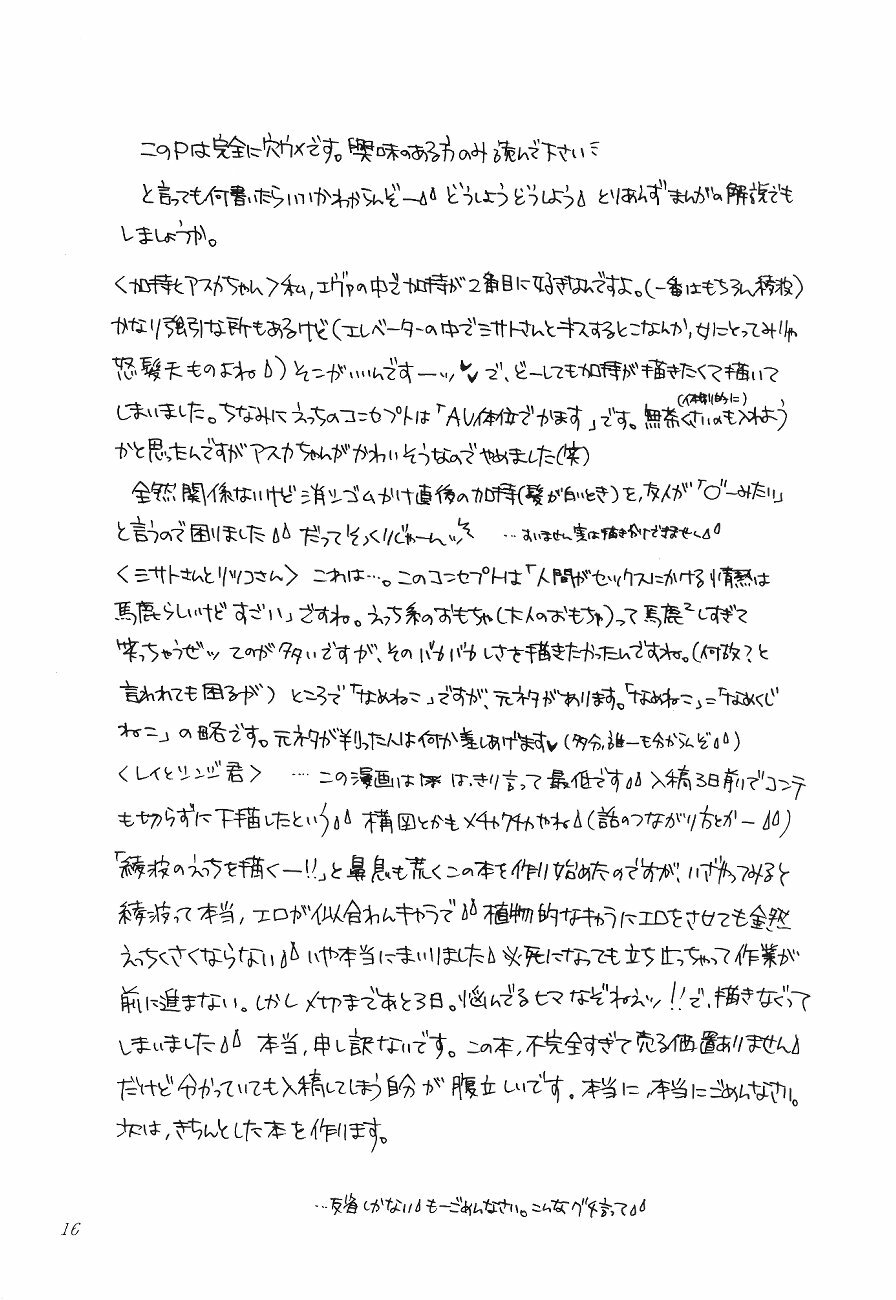 このPは完全に穴ウメです。興味のある方のみ読んで下さい
と言っても何書いたらいいかわからんぞー どうしようどうしよう とりあえずまんがの解説でも
しましょうか。
〈加持とアスカちゃん〉私,エヴァの中で加持が2番目に好きなんですよ。(一番はもちろん綾波)
かなり強引な所もあるけど(エレベーターの中でミサトさんとキスするとこなんか,女にとってみりゃ
怒髪天ものよね)そこがいいんですーッ♥♥で、どーしても加持が描きたくて描いて
しまいました。ちなみにえっちのコンセプトは「AV体位でかます」です。無茶くさいのも入れよう
(体制的に)
かと思ったんですがアスカちゃんがかわいそうなのでやめました(笑)
全然関係ないけど消シゴムかけ直後の加持(髪が白いとき)を,友人が「○゛ーみたい」
と言うので困りました だってそっくりじゃーん …すいません実は描きかけできません
〈ミサトさんとリツコさん〉 これは…。このコンセプトは「人間がセックスにかける情熱は
馬鹿らしいけどすごい」ですね。えっち系のおもちゃ(大人のおもちゃ)って馬鹿²しすぎて
笑っちゃうぜッ てのが多いですが、そのバカバカしさを描きたかったんですね。(何故?と
言われても困るが) ところで「なめねこ」ですが、元ネタがあります。「なめねこ」=「なめくじ
ねこ」の略です。元ネタが判った人は何か差しあげます♥(多分,誰一も分からんぞ)
〈レイとシンジ君〉 …この漫画は はっきり言って最低です 入稿3日前でコンテ
も切らずに下描したという 構図とかもメチャクチャやね(話のつながり方とかー)
「綾波のえっちを描くー!!」と鼻息も荒くこの本を作り始めたのですが、いざやってみると
綾波って本当,エロが似合わんキャラで 植物的なキャラにエロをさせても全然
えっちくさくならない いや本当にまいりました 必死になっても立ち止っちゃって作業が
前に進まない。しかし〆切まであと3日。悩んでるヒマなぞねえッ!!で、描きなぐって
しまいました 本当,申し訳ないです。この本,不完全すぎて売る価置ありません
だけど分かっていても入稿してしまう自分が腹立しいです。本当に,本当にごめんなさい。
次は,きちんとした本を作ります。
…反省しかない もーごめんなさい。こんなグチ言って
16